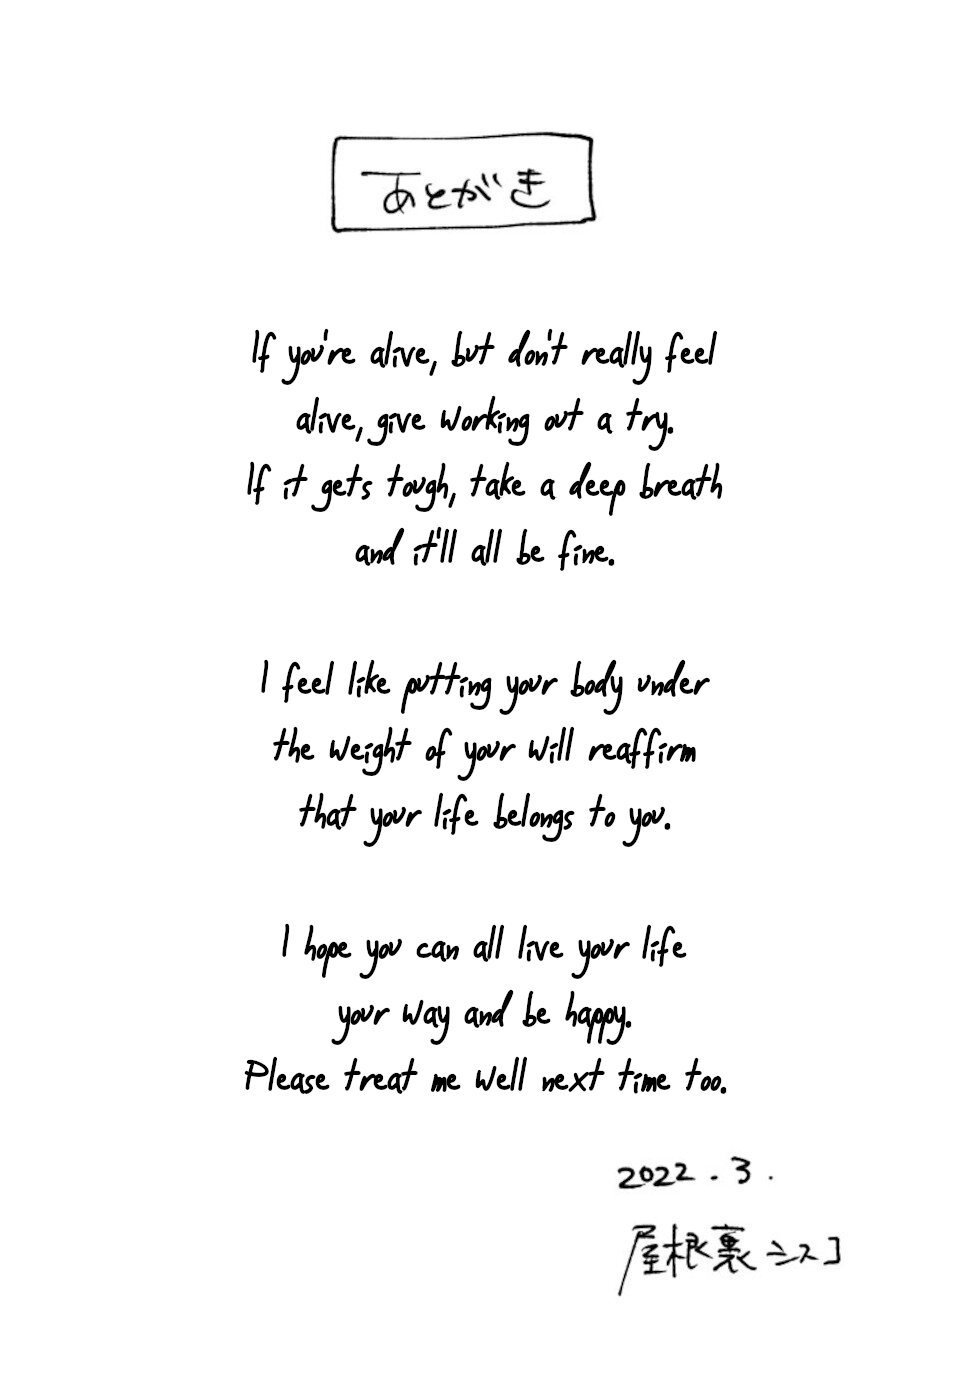 あとがき
If you're alive, but don't really feel
alive, give working out a try.
If it gets tough, take a deep breath
and it'll all be fine.
I feel like putting your body under
the weight of your will reaffirm
that your life belongs to you.
I hope you can all live your life
your way and be happy.
Please treat me well next time too.
2022.3.
屋根裏シスコ